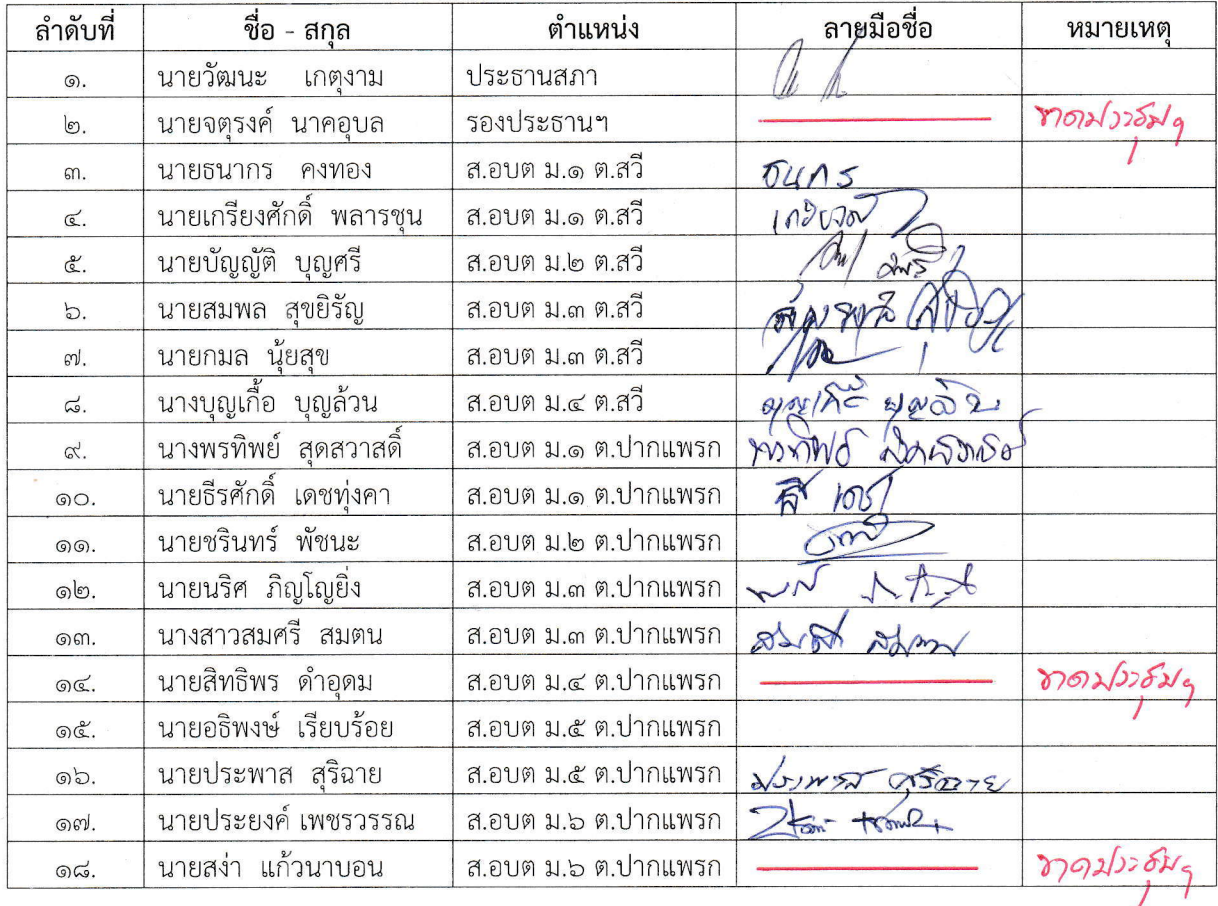 ลำดับที่ ชื่อ - สกุล ตำแหน่ง ลายมือชื่อ หมายเหตุ
๑. นายวัฒนะ เกตุงาม ประธานสภา
๒. นายจตุรงค์ นาคอุบล รองประธานฯ ขาดประชุมฯ
๓. นายธนากร คงทอง ส.อบต ม.๑ ต.สวี ธนากร
๔. นายเกรียงศักดิ์ พลารชุน ส.อบต ม.๑ ต.สวี
๕. นายบัญญัติ บุญศรี ส.อบต ม.๒ ต.สวี
๖. นายสมพล สุขยิรัญ ส.อบต ม.๓ ต.สวี
๗. นายกมล นุ้ยสุข ส.อบต ม.๓ ต.สวี
๘. นางบุญเกื้อ บุญล้วน ส.อบต ม.๔ ต.สวี บุญเกื้อ บุญล้วน
๙. นางพรทิพย์ สุดสวาสดิ์ ส.อบต ม.๑ ต.ปากแพรก พรทิพย์ สุดสวาสดิ์
๑๐. นายธีรศักดิ์ เดชทุ่งคา ส.อบต ม.๑ ต.ปากแพรก
๑๑. นายชรินทร์ พัชนะ ส.อบต ม.๒ ต.ปากแพรก
๑๒. นายนริศ ภิญโญยิ่ง ส.อบต ม.๓ ต.ปากแพรก
๑๓. นางสาวสมศรี สมตน ส.อบต ม.๓ ต.ปากแพรก สมศรี สมตน
๑๔. นายสิทธิพร ดำอุดม ส.อบต ม.๔ ต.ปากแพรก ขาดประชุมฯ
๑๕. นายอธิพงษ์ เรียบร้อย ส.อบต ม.๕ ต.ปากแพรก
๑๖. นายประพาส สุริฉาย ส.อบต ม.๕ ต.ปากแพรก ประพาส สุริฉาย
๑๗. นายประยงค์ เพชรวรรณ ส.อบต ม.๖ ต.ปากแพรก
๑๘. นายสง่า แก้วนาบอน ส.อบต ม.๖ ต.ปากแพรก ขาดประชุมฯ